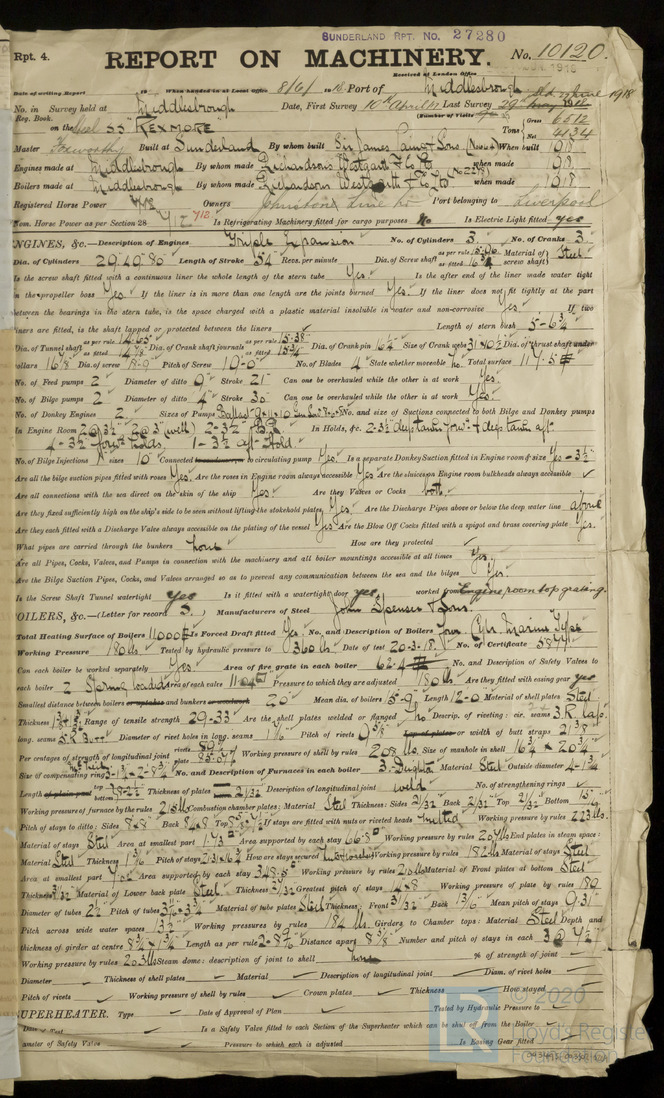 SUNDERLAND RPT. NO. 27280
Rpt. 4.
REPORT ON MACHINERY.
No. 10120.
Received at London Office
Date of writing Report 19 When handed in at Local Office 8/6/ 19 18 Port of Middlesbrough
No. in Survey held at Middlesbrough Date, First Survey 10th April Last Survey 29th May 1918
Reg. Book. (Number of Visits
on the Steel SS "REXMORE" Tons Gross 6512 Net 4134
Master Foxworthy Built at Sunderland By whom built Sir James Laing & Sons When built 1918
Engines made at Middlesbrough By whom made Richardsons Westgarth & Co Ltd when made 1918
Boilers made at Middlesbrough By whom made Richardsons Westgarth & Co Ltd (No 2278) when made 1918
Registered Horse Power Owners Johnston Line Ld Port belonging to Liverpool
Nom. Horse Power as per Section 28 712 712 Is Refrigerating Machinery fitted for cargo purposes No Is Electric Light fitted yes
ENGINES, &c.—Description of Engines Triple Expansion No. of Cylinders 3 No. of Cranks 3
Dia. of Cylinders 29·49·80 Length of Stroke 54" Revs. per minute Dia. of Screw shaft as per rule as fitted Material of screw shaft Steel
Is the screw shaft fitted with a continuous liner the whole length of the stern tube Yes Is the after end of the liner made water tight
in the propeller boss Yes. If the liner is in more than one length are the joints burned Yes. If the liner does not fit tightly at the part
between the bearings in the stern tube, is the space charged with a plastic material insoluble in water and non-corrosive Yes. If two
liners are fitted, is the shaft lapped or protected between the liners Length of stern bush 5-6¾
Dia. of Tunnel shaft as per rule 14.65 as fitted 14⅞ Dia. of Crank shaft journals as per rule 15.38 as fitted 15¾ Dia. of Crank pin 16¼ Size of Crank webs 31×10½ Dia. of thrust shaft under
collars 16⅛ Dia. of screw 18-9 Pitch of Screw 19-0 No. of Blades 4 State whether moveable No. Total surface 117.5
No. of Feed pumps 2 Diameter of ditto 9" Stroke 21" Can one be overhauled while the other is at work Yes.
No. of Bilge pumps 2 Diameter of ditto 4" Stroke 30" Can one be overhauled while the other is at work Yes.
No. of Donkey Engines 2 Sizes of Pumps Ballast No. and size of Suctions connected to both Bilge and Donkey pumps
In Engine Room 2@3½" 2@3" (well) 2-3½" In Holds, &c. 2-3½ deep tank forw + deep tank aft
4-3½" forw holds. 1-3½ aft Hold
No. of Bilge Injections 1 sizes 10" Connected to circulating pump Yes. Is a separate Donkey Suction fitted in Engine room & size Yes - 3½"
Are all the bilge suction pipes fitted with roses Yes. Are the roses in Engine room always accessible Yes Are the sluices on Engine room bulkheads always accessible
Are all connections with the sea direct on the skin of the ship Yes Are they Valves or Cocks both.
Are they fixed sufficiently high on the ship's side to be seen without lifting the stokehold plates Yes. Are the Discharge Pipes above or below the deep water line above
Are they each fitted with a Discharge Valve always accessible on the plating of the vessel Yes Are the Blow Off Cocks fitted with a spigot and brass covering plate Yes.
What pipes are carried through the bunkers none How are they protected
Are all Pipes, Cocks, Valves, and Pumps in connection with the machinery and all boiler mountings accessible at all times Yes.
Are the Bilge Suction Pipes, Cocks, and Valves arranged so as to prevent any communication between the sea and the bilges Yes.
Is the Screw Shaft Tunnel watertight yes Is it fitted with a watertight door yes worked from Engine room top grating.
BOILERS, &c.—(Letter for record S.) Manufacturers of Steel John Spencer & Sons.
Total Heating Surface of Boilers 11000 Is Forced Draft fitted Yes. No. and Description of Boilers Four Cyl. Marine Type
Working Pressure 180 lb Tested by hydraulic pressure to 360 lb Date of test 20-3-18. No. of Certificate 5877
Can each boiler be worked separately Yes. Area of fire grate in each boiler 62.4 No. and Description of Safety Valves to
each boiler 2 Spring loaded Area of each valve Pressure to which they are adjusted 180 lbs Are they fitted with easing gear yes
Smallest distance between boilers or uptakes and bunkers or woodwork 20" Mean dia. of boilers 15-9" Length 12-0 Material of shell plates Steel
Thickness Range of tensile strength 29-33 Are the shell plates welded or flanged No Descrip. of riveting: cir. seams D.R. Lap.
long. seams Diameter of rivet holes in long. seams Pitch of rivets 9⅝ Lap of plates or width of butt straps 21⅜
Per centages of strength of longitudinal joint rivets 89 plate 85.07 Working pressure of shell by rules 208 lbs. Size of manhole in shell 16¾ × 20¾
Size of compensating ring No. and Description of Furnaces in each boiler 3. Deighton Material Steel Outside diameter 4-1¾
Length of plain part top bottom Thickness of plates 21/32 Description of longitudinal joint weld. No. of strengthening rings
Working pressure of furnace by the rules 218 lbs Combustion chamber plates: Material Steel Thickness: Sides 21/32 Back 21/32 Top 21/32 Bottom 15/16
Pitch of stays to ditto: Sides 8×8 Back 8¼×8 Top If stays are fitted with nuts or riveted heads nutted Working pressure by rules 223 lbs.
Material of stays Steel Area at smallest part 1.73 Area supported by each stay 66.8 Working pressure by rules 207 lbs End plates in steam space:
Material Steel Thickness 1 3/16 Pitch of stays How are stays secured Working pressure by rules 182 lbs Material of stays Steel
Area at smallest part Area supported by each stay 348.8 Working pressure by rules 210 lbs Material of Front plates at bottom Steel
Thickness Material of Lower back plate Steel. Thickness Greatest pitch of stays 14×8 Working pressure of plate by rules 189
Diameter of tubes 2½ Pitch of tubes Material of tube plates Steel Thickness: Front Back Mean pitch of stays 9.31"
Pitch across wide water spaces 13½ Working pressures by rules 184 lbs. Girders to Chamber tops: Material Steel Depth and
thickness of girder at centre 8¾ × 1¾ Length as per rule 2-8 9/16 Distance apart 8⅝ Number and pitch of stays in each 3@7½"
Working pressure by rules 203 lbs Steam dome: description of joint to shell none % of strength of joint
Diameter Thickness of shell plates Material Description of longitudinal joint Diam. of rivet holes
Pitch of rivets Working pressure of shell by rules Crown plates Thickness How stayed
SUPERHEATER. Type Date of Approval of Plan Tested by Hydraulic Pressure to
Date of Test Is a Safety Valve fitted to each Section of the Superheater which can be shut off from the Boiler
Diameter of Safety Valve Pressure to which each is adjusted Is Easing Gear fitted
© 2020
Lloyd's Register
Foundation